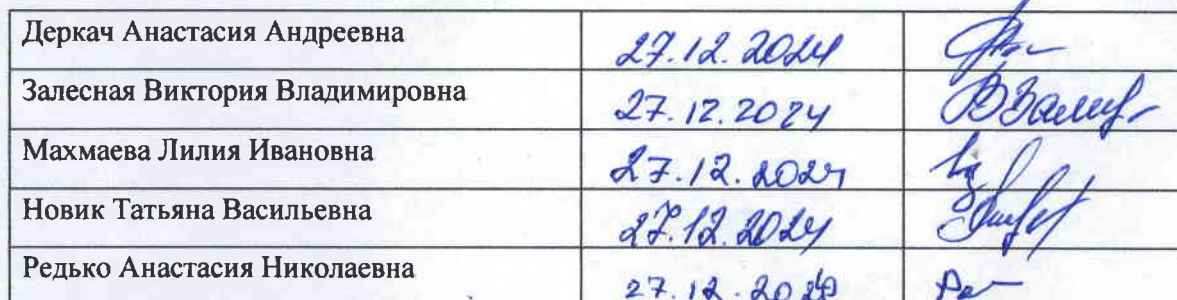 Деркач Анастасия Андреевна 27.12.2024
Залесная Виктория Владимировна 27.12.2024
Махмаева Лилия Ивановна 27.12.2024
Новик Татьяна Васильевна 27.12.2024
Редько Анастасия Николаевна 27.12.2024